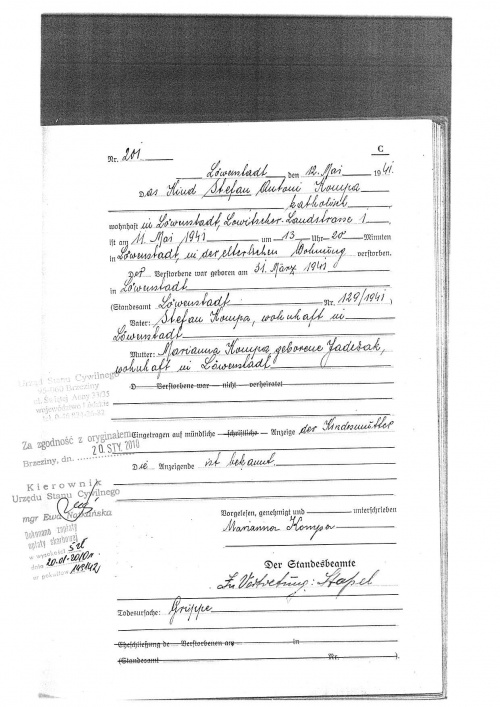 C
Nr. 201
Löwenstadt, den 12. Mai 1941.
Das Kind Stefan Antoni Kompa
katholisch
wohnhaft in Löwenstadt, Lowitscher-Landstrasse 1
ist am 11. Mai 1941 um 13 Uhr 20 Minuten
in Löwenstadt, in der elterlichen Wohnung verstorben.
Der Verstorbene war geboren am 31. März 1941
in Löwenstadt
(Standesamt Löwenstadt Nr. 129/1941)
Vater: Stefan Kompa, wohnhaft in
Löwenstadt
Mutter: Marianna Kompa geborene
wohnhaft in Löwenstadt
D Verstorbene war nicht verheiratet
Urząd Stanu Cywilnego
95-060 Brzeziny
województwo Łódzkie
Eingetragen auf mündliche schriftliche Anzeige der Kindesmutter
Za zgodność z oryginałem
Brzeziny, dn. 20 STY. 2010
Die Anzeigende ist bekannt.
Kierownik
Urzędu Stanu Cywilnego
mgr Ewa
Vorgelesen, genehmigt und unterschrieben
Marianna Kompa
Dokonano zapłaty
opłaty skarbowej
w wysokości
dnia 20.01.2010r.
nr pokwitow.
Der Standesbeamte
In Vertretung: Stapel
Todesursache: Grippe
Eheschließung de Verstorbenen am in
(Standesamt Nr. ).